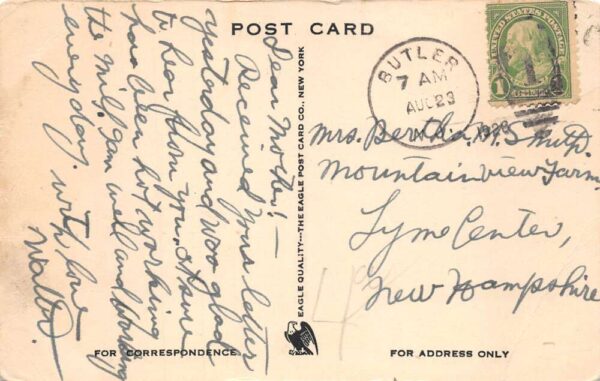 POST CARD
UNITED STATES POSTAGE
1
BUTLER
7 AM
AUG 23
N.J.
1926
Dear Mother! —
Received your letter
yesterday and was glad
to hear from you. I have
have been hot working
the mill. I am well and working
every day. with love
Walter.
EAGLE QUALITY—THE EAGLE POST CARD CO., NEW YORK
Mrs. Bertha M. Smith.
Mountainview Farm.
Lyme Center,
New Hampshire
FOR CORRESPONDENCE
FOR ADDRESS ONLY